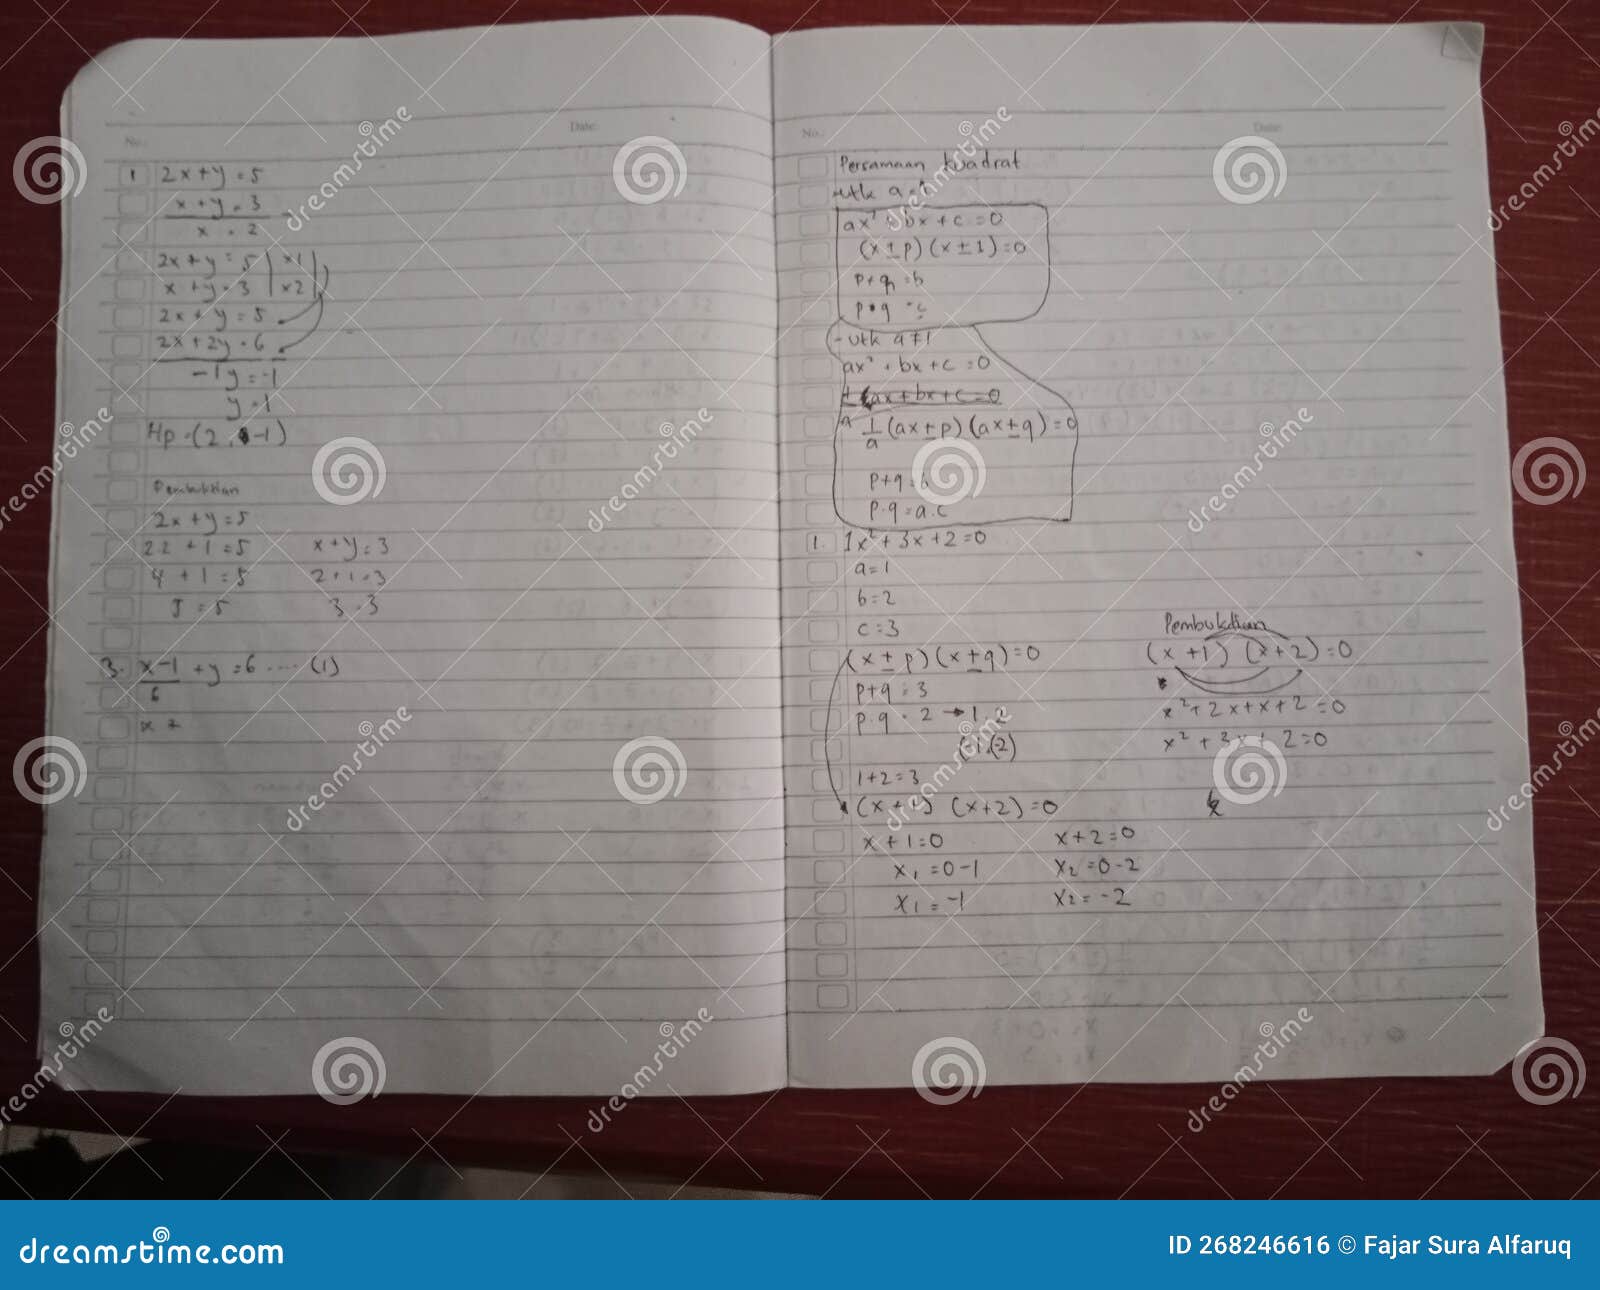 No.: Date:
1 2x+y=5
x+y=3
x = 2
2x+y=5 | x1 |
x+y=3 | x2 |
2x+y=5
2x+2y=6
-1y=-1
y=1
Hp=(2, -1)
Pembuktian
2x+y=5
2.2+1=5 x+y=3
4+1=5 2+1=3
5=5 3=3
3. x-1/6 +y=6 .... (1)
No.: Date:
Persamaan kuadrat
utk a=1
ax²+bx+c=0
(x±p)(x±1)=0
p+q=b
p•q=c
-utk a≠1
ax²+bx+c=0
ax+bx+c=0
1/a (ax±p)(ax±q)=0
p+q=b
p.q=a.c
1. 1x²+3x+2=0
a=1
b=2
c=3
(x±p)(x±q)=0
p+q=3
p.q=2 → 1.2
(-1.(-2)
1+2=3
(x+1) (x+2)=0
x+1=0 x+2=0
x₁=0-1 x₂=0-2
x₁=-1 x₂=-2
Pembuktian
(x+1) (x+2)=0
x²+2x+x+2=0
x²+3x+2=0
dreamstime.com
ID 268246616 © Fajar Sura Alfaruq